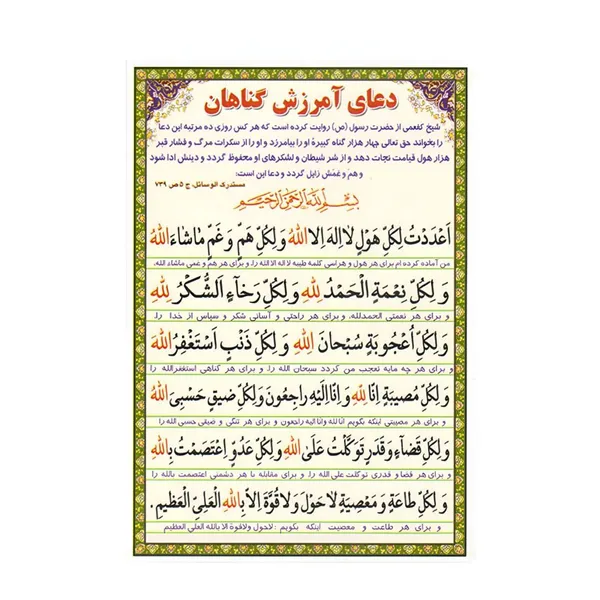 دعای آمرزش گناهان
شیخ کفعمی از حضرت رسول (ص) روایت کرده است که هر کس روزی ده مرتبه این دعا
را بخواند حق تعالی چهار هزار گناه کبیرهٔ او را بیامرزد و او را از سکرات مرگ و فشار قبر
هزار هول قیامت نجات دهد و از شر شیطان و لشکرهای او محفوظ گردد و دینش ادا شود
و هم و غمش زایل گردد و دعا این است:
مستدرک الوسائل، ج ۵ ص ۷۳۹
بِسْمِ اللهِ الرَّحْمٰنِ الرَّحِیمِ
اَعْدَدْتُ لِکُلِّ هَوْلٍ لا اِلهَ اِلاَّ اللهُ وَ لِکُلِّ هَمٍّ وَ غَمٍّ مٰا شاءَ اللهُ
من آماده کرده ام برای هر هول و هراسی کلمه طیبه لا اله الا الله را، و برای هر هم و غمی ماشاء الله،
وَ لِکُلِّ نِعْمَةٍ اَلْحَمْدُ لِلّٰهِ وَ لِکُلِّ رَخآءٍ اَلشُّکْرُ لِلّٰهِ
و برای هر نعمتی الحمدلله، و برای هر راحتی و آسانی شکر و سپاس از خدا را.
وَ لِکُلِّ اُعْجُوبَةٍ سُبْحانَ اللهِ وَ لِکُلِّ ذَنْبٍ اَسْتَغْفِرُ اللهَ
و برای هر چه مایه تعجب من گردد سبحان الله را، و برای هر گناهی استغفرالله را
وَ لِکُلِّ مُصیبَةٍ اِنّا لِلّٰهِ وَ اِنّا اِلَیْهِ راجِعُونَ وَ لِکُلِّ ضیقٍ حَسْبِیَ اللهُ
و برای هر مصیبتی اینکه بگویم انا لله وانا الیه راجعون و برای هر تنگی و ضیقی حسبی الله را
وَ لِکُلِّ قَضآءٍ وَ قَدَرٍ تَوَکَّلْتُ عَلَی اللهِ وَ لِکُلِّ عَدُوٍّ اِعْتَصَمْتُ بِاللهِ
و برای هر قضا و قدری توکلت علی الله را، و برای مقابله با هر دشمنی اعتصمت بالله را
وَ لِکُلِّ طاعَةٍ وَ مَعْصِیَةٍ لا حَوْلَ وَ لا قُوَّةَ اِلاَّ بِاللهِ الْعَلِیِّ الْعَظیمِ.
و برای هر طاعت و معصیت اینکه بگویم: لاحول ولاقوة الا بالله العلی العظیم